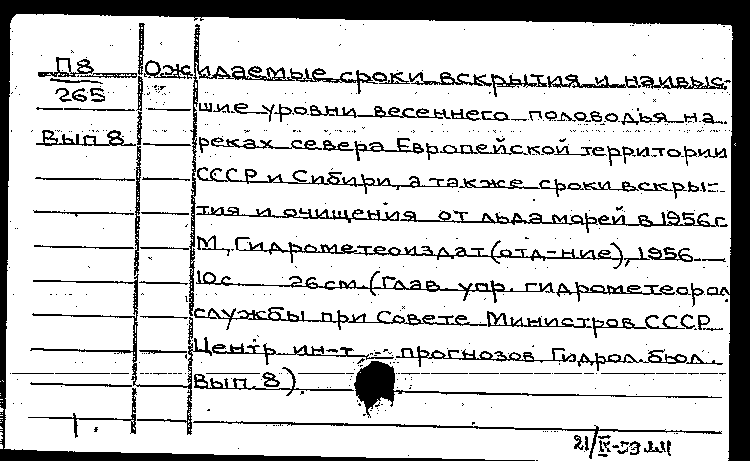 П8
265
Вып 8
Ожидаемые сроки вскрытия и наивыс-
шие уровни весеннего половодья на
реках севера Европейской территории
СССР и Сибири, а также сроки вскры-
тия и очищения от льда морей в 1956г
М, Гидрометеоиздат (отд-ние), 1956
10с 26см. (Глав упр. гидрометеорол
службы при Совете Министров СССР
Центр ин-т прогнозов. Гидрол. бюл.
вып. 8)